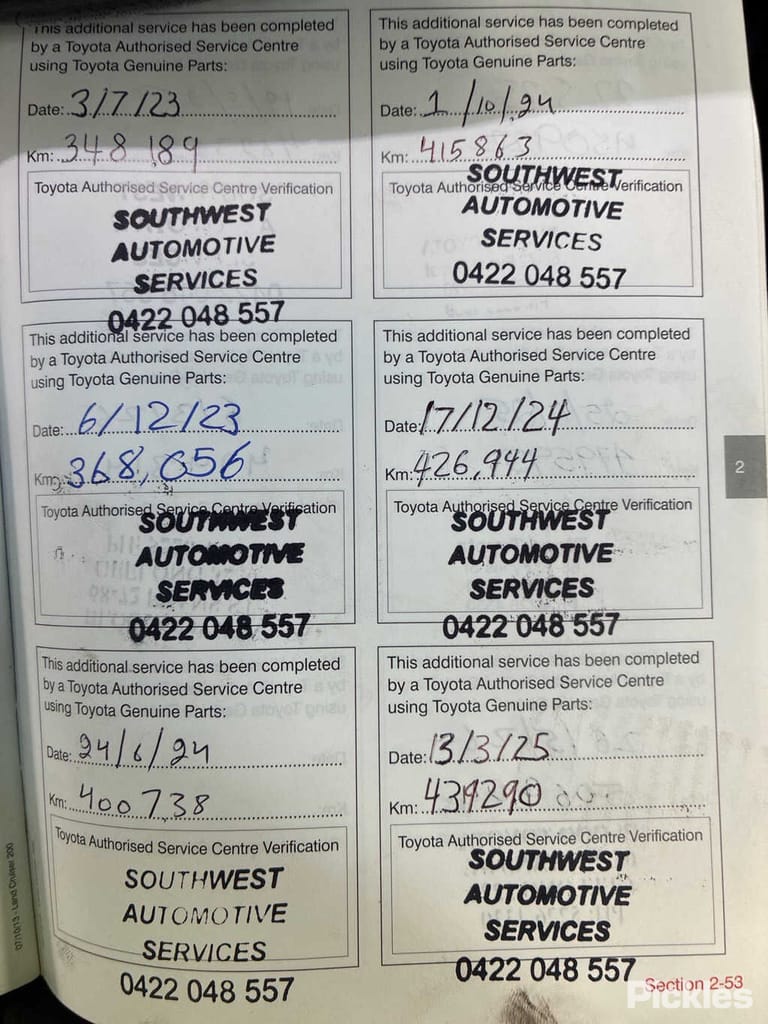 This additional service has been completed
by a Toyota Authorised Service Centre
using Toyota Genuine Parts:
Date: 3/7/23
Km: 348,189
Toyota Authorised Service Centre Verification
SOUTHWEST
AUTOMOTIVE
SERVICES
0422 048 557
This additional service has been completed
by a Toyota Authorised Service Centre
using Toyota Genuine Parts:
Date: 6/12/23
Km: 368,056
Toyota Authorised Service Centre Verification
SOUTHWEST
AUTOMOTIVE
SERVICES
0422 048 557
This additional service has been completed
by a Toyota Authorised Service Centre
using Toyota Genuine Parts:
Date: 24/6/24
Km: 400738
Toyota Authorised Service Centre Verification
SOUTHWEST
AUTOMOTIVE
SERVICES
0422 048 557
This additional service has been completed
by a Toyota Authorised Service Centre
using Toyota Genuine Parts:
Date: 1/10/24
Km: 415863
Toyota Authorised Service Centre Verification
SOUTHWEST
AUTOMOTIVE
SERVICES
0422 048 557
This additional service has been completed
by a Toyota Authorised Service Centre
using Toyota Genuine Parts:
Date: 17/12/24
Km: 426,944
Toyota Authorised Service Centre Verification
SOUTHWEST
AUTOMOTIVE
SERVICES
0422 048 557
This additional service has been completed
by a Toyota Authorised Service Centre
using Toyota Genuine Parts:
Date: 13/3/25
Km: 439290
Toyota Authorised Service Centre Verification
SOUTHWEST
AUTOMOTIVE
SERVICES
0422 048 557
2
07/10/13 - Land Cruiser 200
Section 2-53
Pickles